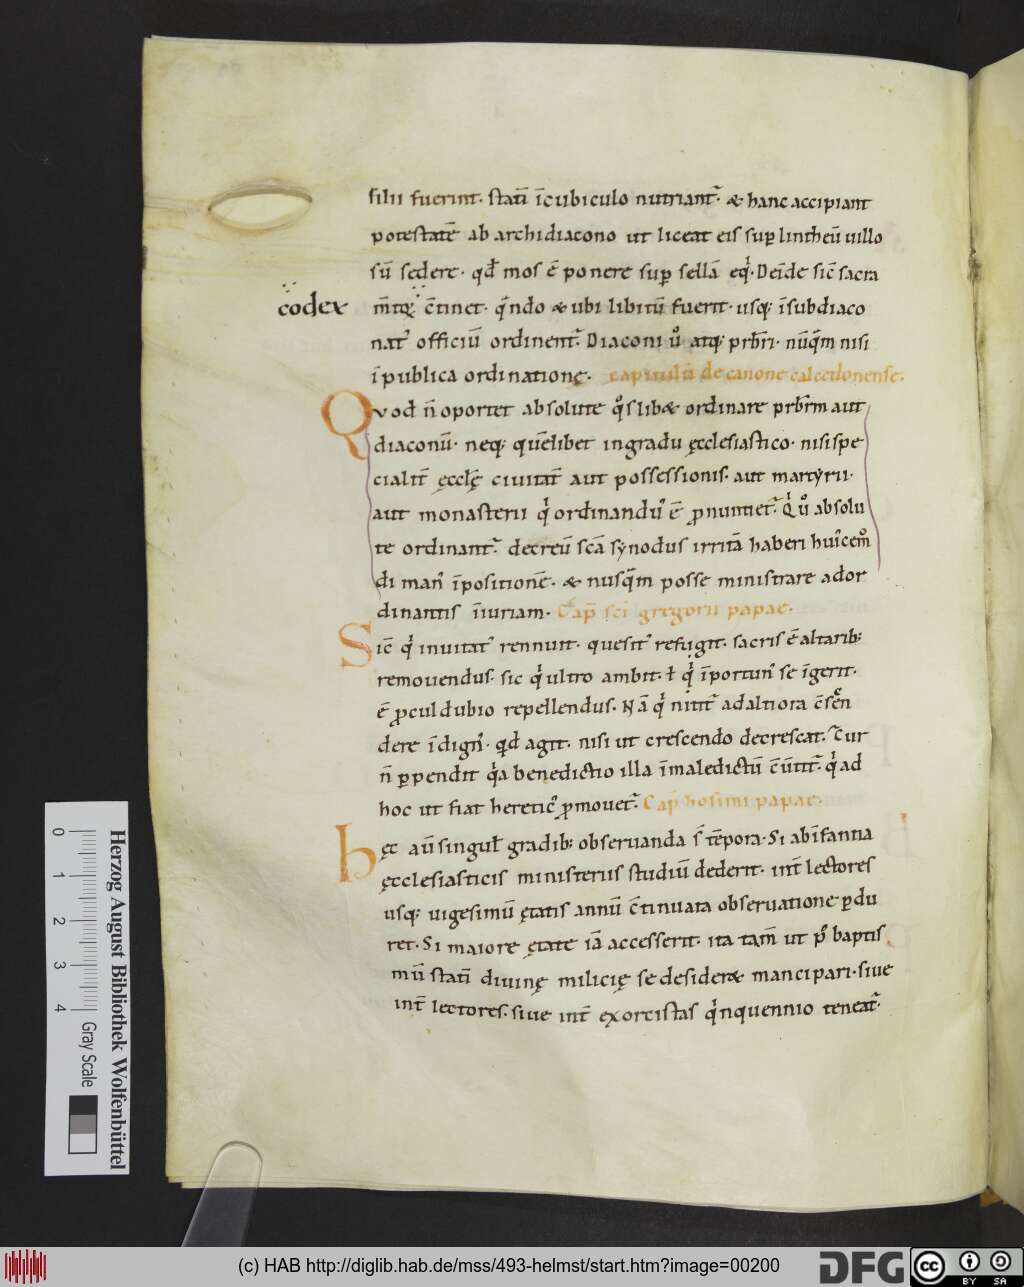 filii fuerint. statī īcubiculo nutriant᷑. & hanc accipiant
potestatē ab archidiacono ut liceat eis suꝑ lintheū uillo
sū sedere. qđ mos ē ponere suꝑ sellā eqͥ. Deīde sic̄ sacra
codex
m̄tꝗ; c̄tinet. qn̄do & ubi libitū fuerit. usq; īsubdiaco
natꝰ officiū ordinent᷑. Diaconi uͦ atq; prb̄ri. nūqͣm nisi
īpublica ordinatione. capitulū de canone calcedonense.
Qvod n̄ oportet absolute qͦslib& ordinare prb̄rm aut
diaconū. neq; quēlibet ingradu ęcclesiastico. nisi spe
cialit̄ ęccl̄ę ciuitat̄ aut possessionis. aut martyrii.
aut monasterii qͥ ordinandꝰ ē ꝓnuntiet᷑. Qͥ uͦ absolu
te ordinant᷑. decreū sc̄a synodus irritā haberi huiꝰcemͦ
di manꝰ īpositionē. & nusqͣm posse ministrare ad or
dinantis īiuriam. Cap̄ sc̄i gregorii papae.
Sic̄ qͥ inuitatꝰ rennuit. quesitꝰ refugit. sacris ē altarib;
remouendus. sic qͥ ultro ambit. ł qͥ īportunꝰ se īgerit.
ē ꝓcul dubio repellendus. Nā qͥ nitit᷑ ad altiora c̄scen
dere īdignꝰ. qđ agit. nisi ut crescendo decrescat. Cur
n̄ ꝑpendit qͥa benedictio illa īmaledictū c̄ūtit᷑. qͥ ad
hoc ut fiat hereticꝰ ꝓmouet᷑. Cap̄ hosimi papae.
hęc aūt singul̄ gradib; obseruanda s̄ tēpora. Si ab īfantia
ęcclesiasticis ministeriis studiū dederit. int̄ lectores
usq; uigesimū ętatis annū c̄tinuata obseruatione ꝑdu
ret. Si maiore ętate iā accesserit. ita tam̄ ut pꝰ baptis
mū statī diuinę milicię se desider& mancipari. siue
int̄ lectores. siue int̄ exorcistas qͥnquennio teneat᷑.
0 1 2 3 4 Gray Scale
Herzog August Bibliothek Wolfenbüttel
(c) HAB http://diglib.hab.de/mss/493-helmst/start.htm?image=00200
DFG
cc BY SA